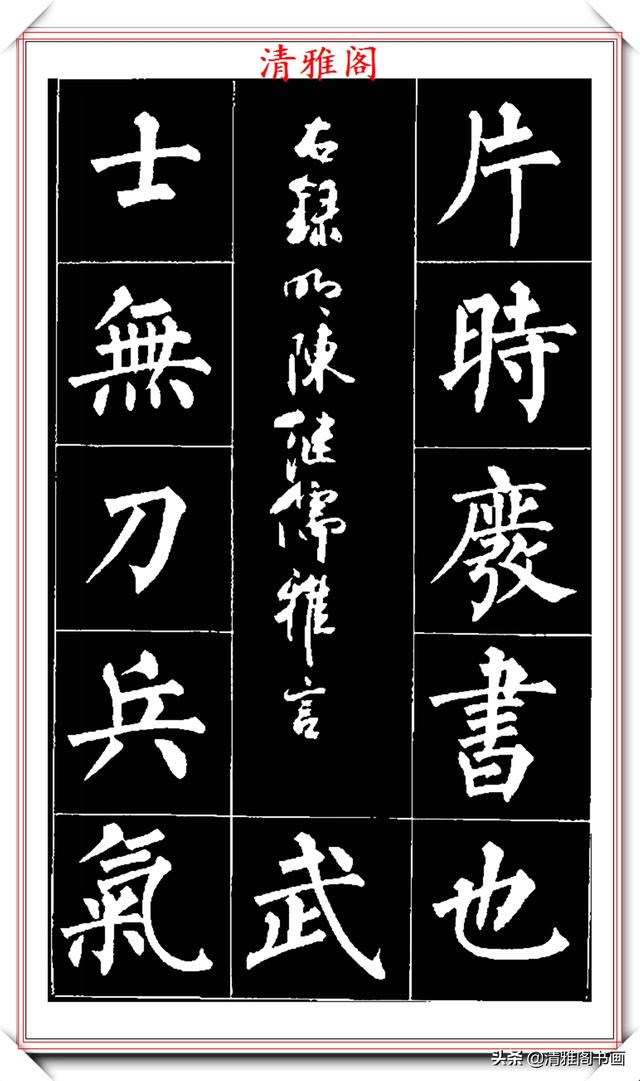 清雅阁
片時廢書也
右録明陳继儒雅言
武
士無刀兵氣
头条@清雅阁书画